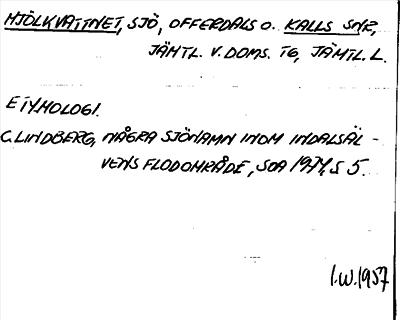 MJÖLKVATTNET, SJÖ, OFFERDALS O. KALLS SNR,
JÄMTL. V. DOMS. TG, JÄMTL. L.
ETYMOLOGI.
C. LINDBERG, NÅGRA SJÖNAMN INOM INDALSÄL-
VENS FLODOMRÅDE, SOA S 5.
I.W. 1957